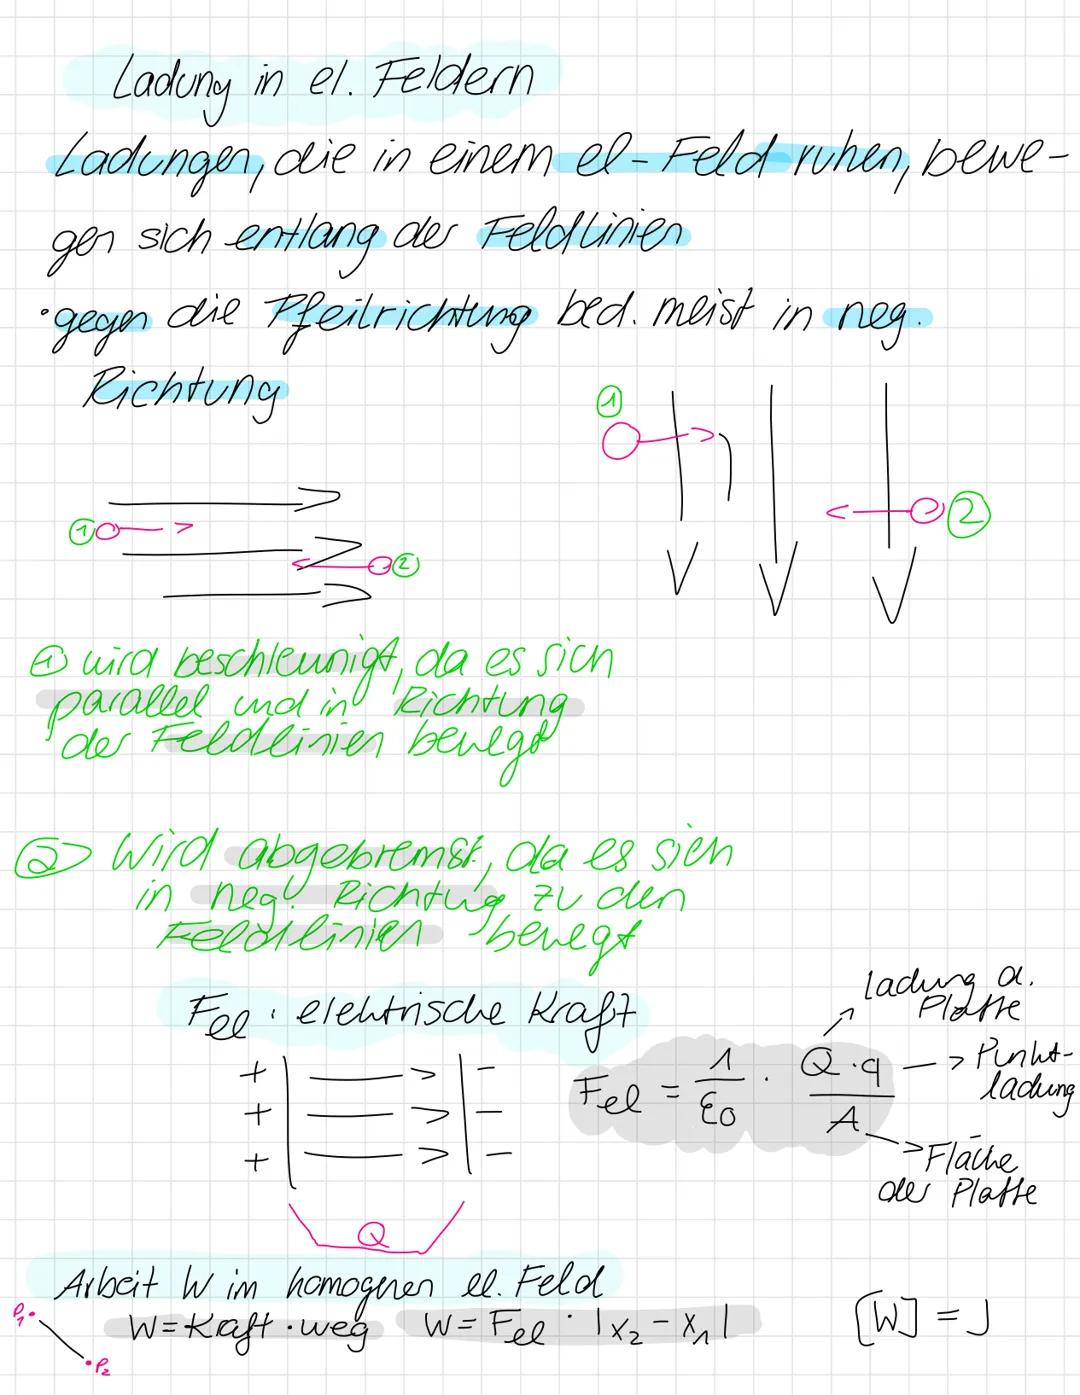 Ladung in el. Feldern
Ladungen, die in einem el-Feld ruhen, bewe-
gen sich entlang der Feldlinien
·gegen die Pfeilrichtung bed. meist in neg.
Richtung
①
② 
①
②
① wird beschleunigt, da es sich
parallel und in Richtung
der Feldlinien bewegt
② Wird abgebremst, da es sich
in neg. Richtung zu den
Feldlinien bewegt
Fel : elektrische Kraft
ladung d.
Platte
Fel = 1/ε0 · Q·q/A
Punkt-
ladung
Fläche
der Platte
+ −
+ −
+ −
Q
Arbeit W im homogenen el. Feld
W = Kraft · weg W = Fel · |x2 − x1| [W] = J
P1
P2